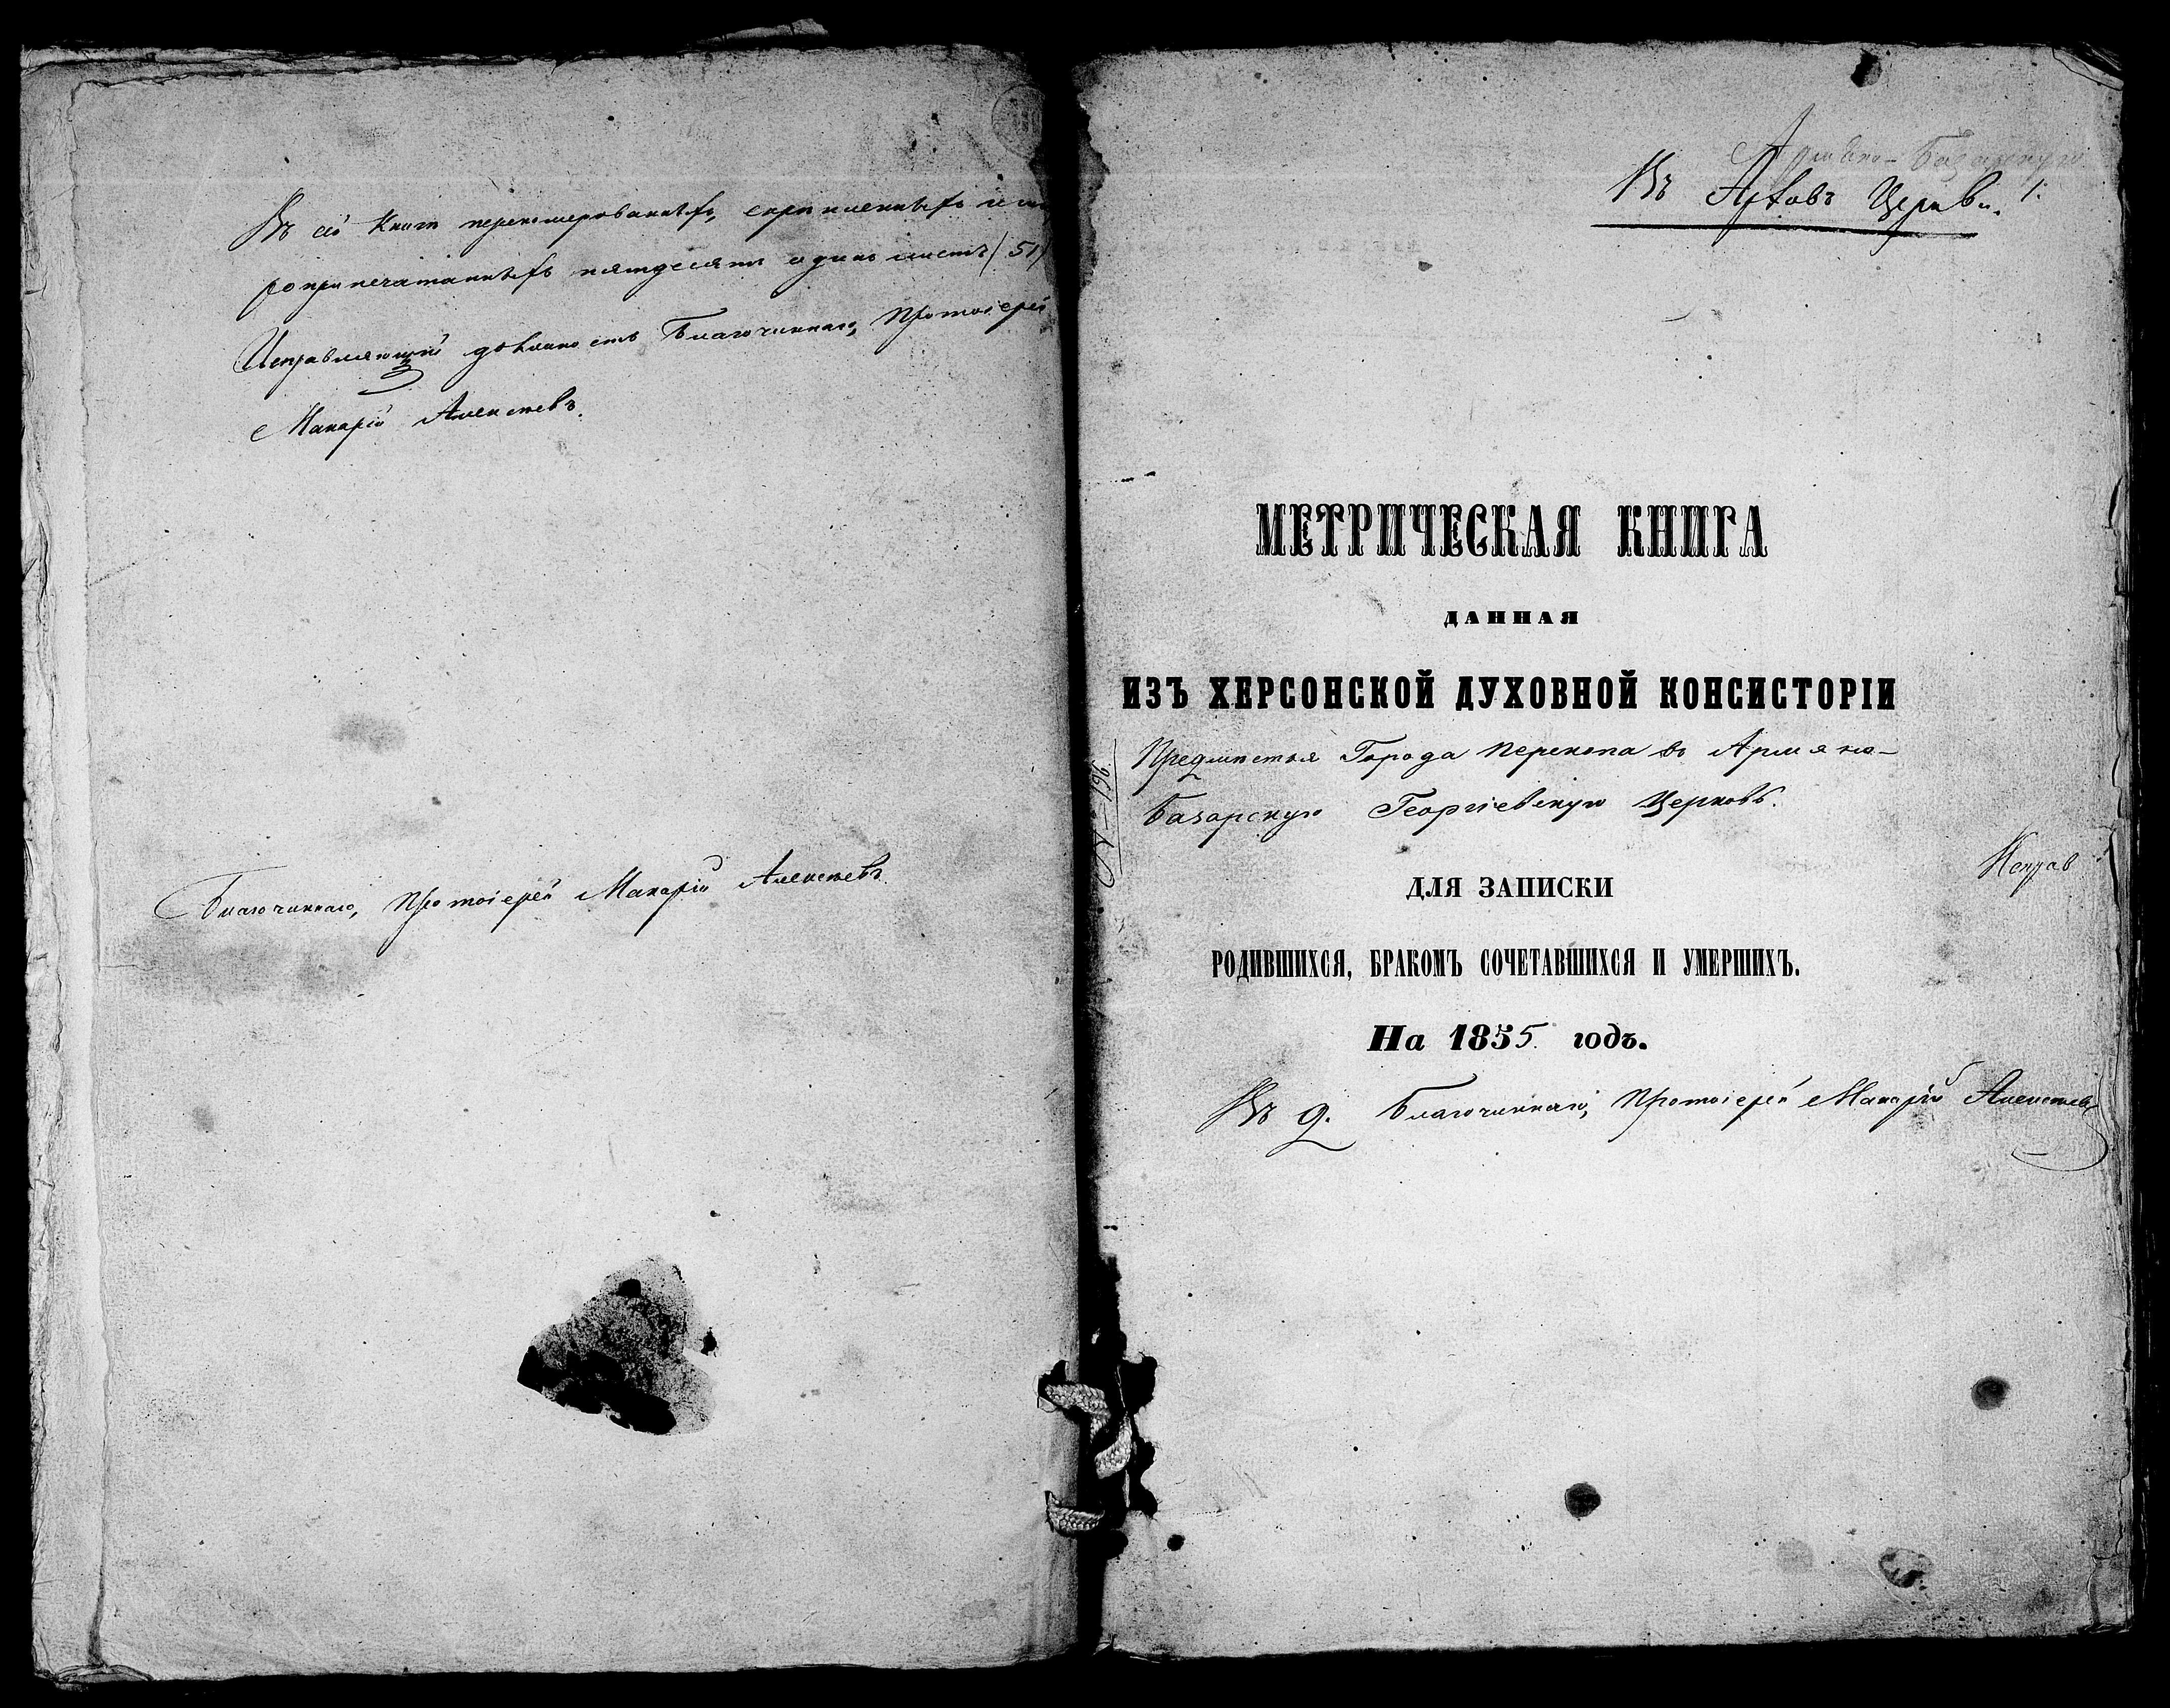 Въ сей Книгѣ перенумерованныхъ, скрѣпленныхъ и
ропрпечатанныхъ пятдесятъ одинъ листъ (51)
Исправляющій должность Благочиннаго, Протоіерей
Макарій Алексѣевъ.
Благочиннаго, Протоіерей Макарій Алексѣевъ.
Армяно-Базарскую
Въ Церкви. 1:
МЕТРИЧЕСКАЯ КНИГА
ДАННАЯ
ИЗЪ ХЕРСОНСКОЙ ДУХОВНОЙ КОНСИСТОРІИ
Предмѣстья Города Перекопа въ Армяно-
Базарскую Георгіевскую Церковь.
№ 196.
ДЛЯ ЗАПИСКИ
Исправ
РОДИВШИХСЯ, БРАКОМЪ СОЧЕТАВШИХСЯ И УМЕРШИХЪ.
На 1855 годъ.
Въ д. Благочиннаго, Протоіерей Макарій Алексѣевъ